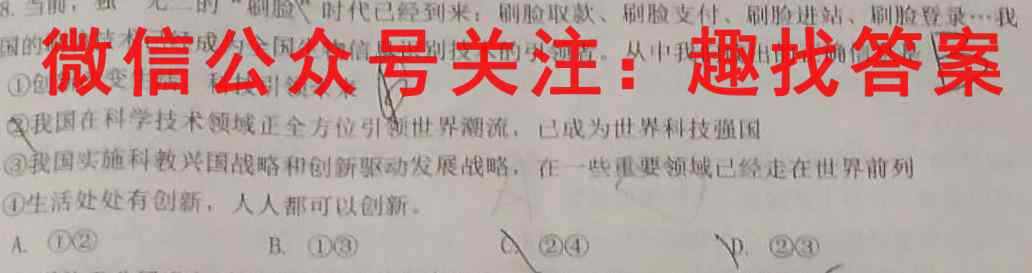 8. 当前，独一无二的“刷脸”时代已经到来：刷脸取款、刷脸支付、刷脸进站、刷脸登录…我
国的 技术 成为全国 信 别技术的引领者。从中我
微信公众号关注：趣找答案
①创 变生活，科技引领未来
②我国在科学技术领域正全方位引领世界潮流，已成为世界科技强国
③我国实施科教兴国战略和创新驱动发展战略，在一些重要领域已经走在世界前列
④生活处处有创新，人人都可以创新。
A. ①② B. ①③ C. ②④ D. ②③